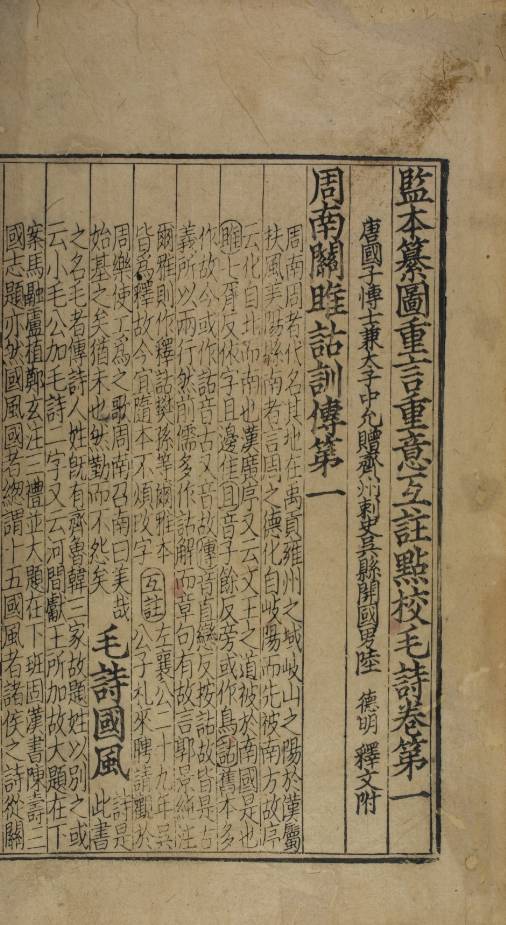 監本纂圖重言重意互註點校毛詩卷第一
唐國子愽士兼太子中允贈齊州刺史吳縣開國男陸 德明 釋文附
周南關雎詁訓傳第一
周南周者代名其地在禹貢雍州之域岐山之陽於漢屬
扶風美陽縣南者言周之德化自岐陽而先被南方故序
云化自北而南也漢廣序又云文王之道被於南國是也
雎七胥反依字且邊隹且音子餘反旁或作鳥詁舊本多
作故今或作詁音古又音故傳音直戀反按詁故皆是古
義所以兩行然前儒多作詁解而章句有故言郭景純注
爾雅則作釋詁樊孫等爾雅本
皆爲釋故今宜隨本不煩改字
互註
左襄公二十九年吳
公子札來聘請觀於
周樂使工爲之歌周南召南曰美哉
始基之矣猶未也然勤而不怨矣
毛詩國風
詩是
此書
之名毛者傳詩人姓既有齊魯韓三家故題姓以別之或
云小毛公加毛詩二字又云河間獻王所加故大題在下
案馬融盧植鄭玄注三禮並大題在下班固漢書陳壽三
國志題亦然國風國者緫謂十五國風者諸侯之詩從關